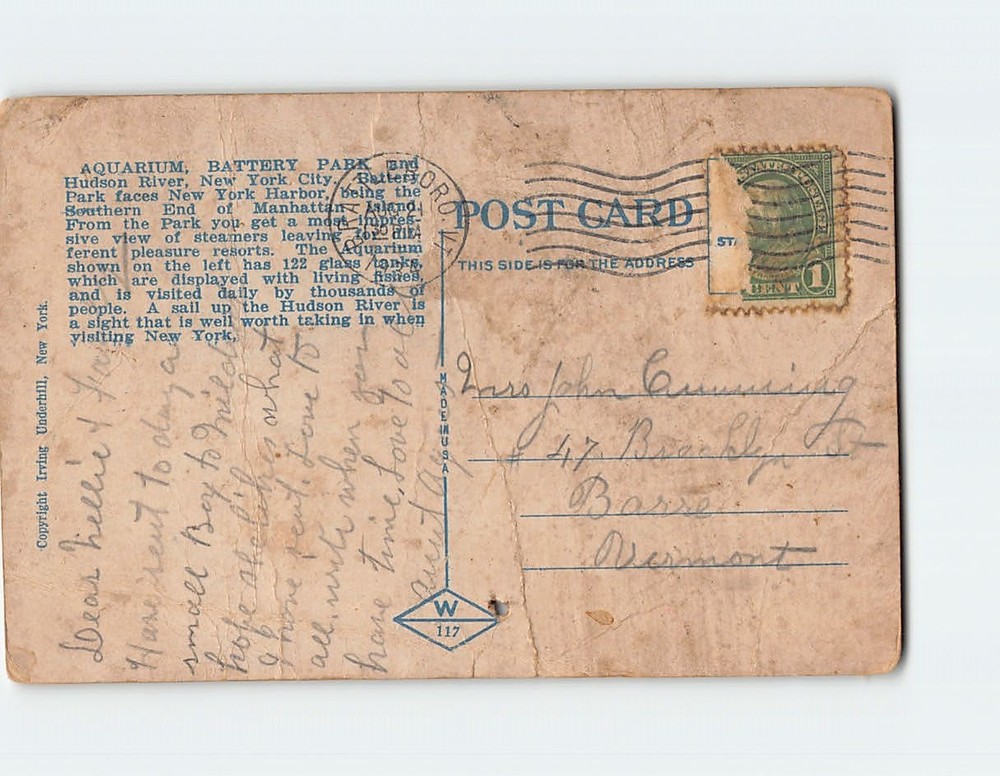 AQUARIUM, BATTERY PARK and
Hudson River, New York City. Battery
Park faces New York Harbor, being the
Southern End of Manhattan Island.
From the Park you get a most impres-
sive view of steamers leaving for dif-
ferent pleasure resorts. The Aquarium
shown on the left has 122 glass tanks,
which are displayed with living fishes,
and is visited daily by thousands of
people. A sail up the Hudson River is
a sight that is well worth taking in when
visiting New York.
Copyright Irving Underhill, New York.
POST CARD
THIS SIDE IS FOR THE ADDRESS
MADE IN USA
W
117
STA
CENT 1
Mrs John Cumming
47 Brooklyn St
Barre
Vermont
Dear Nellie &
Have sent to day a
small Box to Mildred
hope she likes what
I have sent. Love to
all. write when you
have time. Love to all
Aunt